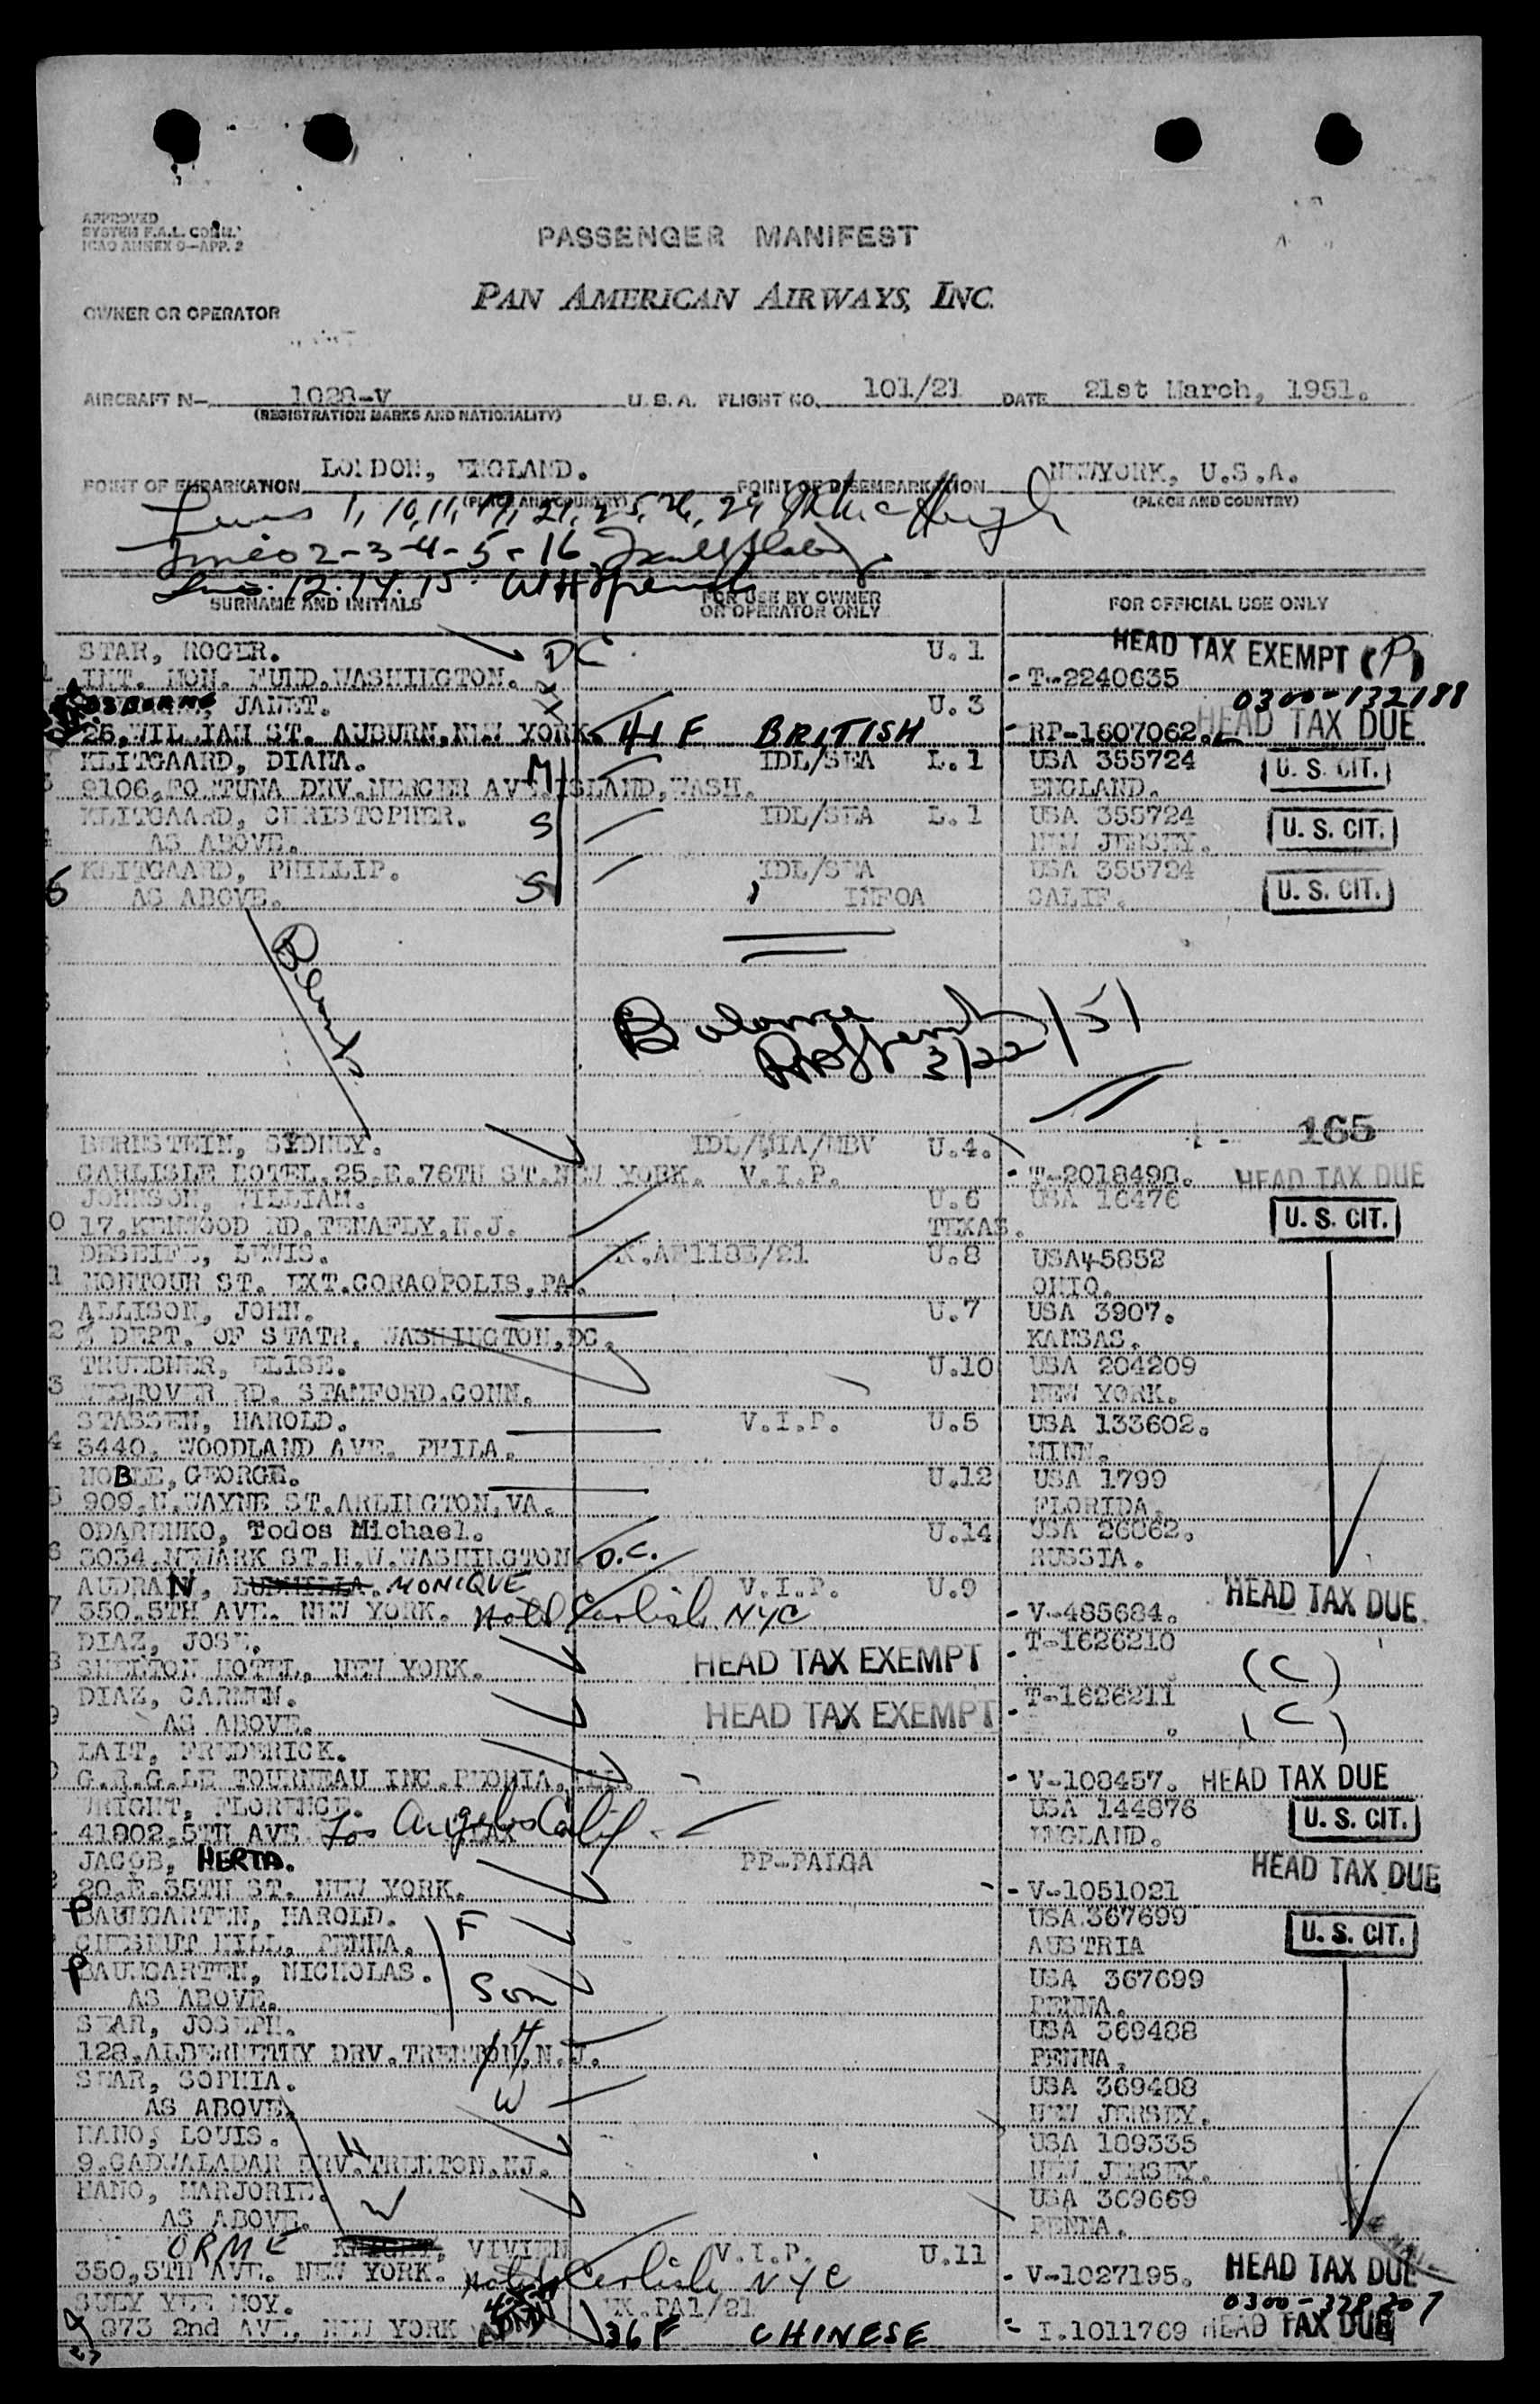 APPROVED
SYSTEM F.A.L. COMM.
ICAO ANNEX 9-APP. 2
PASSENGER MANIFEST
PAN AMERICAN AIRWAYS, INC.
OWNER OR OPERATOR
AIRCRAFT N- 1028-V U.S.A. FLIGHT NO. 101/21 DATE 21st March, 1951.
(REGISTRATION MARKS AND NATIONALITY)
POINT OF EMBARKATION LONDON, ENGLAND. POINT OF DISEMBARKATION NEWYORK, U.S.A.
(PLACE AND COUNTRY) (PLACE AND COUNTRY)
Lines 1, 10, 11, 19, 21, 25, 26, 29
Lines 2-3-4-5-16
Lines 12.14.15.
SURNAME AND INITIALS FOR USE BY OWNER OR OPERATOR ONLY FOR OFFICIAL USE ONLY
STAR, ROGER. DC U.1 HEAD TAX EXEMPT (P)
INT. MON. FUND.WASHINGTON. T-2240635
OSBORNE, JANET. U.3 0300-132188
26,WILLIAM ST. AUBURN,NEW YORK. 41 F BRITISH RP-1607062. HEAD TAX DUE
KLITGAARD, DIANA. M IDL/SEA L.1 USA 355724 U. S. CIT.
9106,FORTUNA DRV.MERCER AVE.ISLAND,WASH. ENGLAND.
KLITGAARD, CHRISTOPHER. S IDL/SEA L.1 USA 355724 U. S. CIT.
AS ABOVE. NEW JERSEY.
KLITGAARD, PHILLIP. S IDL/SEA USA 355724
5 AS ABOVE. INFOA CALIF. U. S. CIT.
Balance
3/22/51
165
BERNSTEIN, SYDNEY. IDL/MIA/MBV U.4.
CARLISLE HOTEL.25.E.76TH ST.NEW YORK. V.I.P. T-2018498. HEAD TAX DUE
JOHNSON, WILLIAM. U.6 USA 16476
0 17,KENWOOD RD.TENAFLY,N.J. TEXAS. U. S. CIT.
DESEIFE, LEWIS. U.8 USA 45852
1 MONTOUR ST. EXT.CORAOPOLIS,PA. OHIO.
ALLISON, JOHN. U.7 USA 3907.
2 % DEPT. OF STATE, WASHINGTON,DC. KANSAS.
TRUEBNER, ELISE. U.10 USA 204209
3 WESTOVER RD. STAMFORD.CONN. NEW YORK.
STASSEN, HAROLD. V.I.P. U.5 USA 133602.
4 3440, WOODLAND AVE. PHILA. MINN.
NOBLE, GEORGE. U.12 USA 1799
5 909.N.WAYNE ST.ARLINGTON,VA. FLORIDA.
ODARENKO, Todos Michael. U.14 USA 26862.
6 3034.NEWARK ST.N.W.WASHINGTON. D.C. RUSSIA.
AUDRAN, MONIQUE V.I.P. U.9 HEAD TAX DUE.
7 350.5TH AVE. NEW YORK. Hotel Carlisle NYC V-485684.
DIAZ, JOSE, T-1626210
8 SHELTON HOTEL, NEW YORK. HEAD TAX EXEMPT (C)
DIAZ, CARMEN. T-1626211
9 AS ABOVE. HEAD TAX EXEMPT (C)
LAIT, FREDERICK.
C.R.G.LE TOURNEAU INC.PEORIA,ILL. V-108457. HEAD TAX DUE
WRIGHT, FLORENCE. USA 144876
41802,5TH AVE Los Angeles Calif. ENGLAND. U. S. CIT.
JACOB, HERTA. PP-PALGA HEAD TAX DUE
20.E.55TH ST. NEW YORK. V-1051021
P BAUMGARTEN, HAROLD. F USA.367699
CHESNUT HILL, PENNA. AUSTRIA U. S. CIT.
P BAUMGARTEN, NICHOLAS. Son USA 367699
AS ABOVE. PENNA.
STAR, JOSEPH. H USA 369488
128.ALBERNETHY DRV.TRENTON,N.J. PENNA.
STAR, SOPHIA. W USA 369488
AS ABOVE. NEW JERSEY.
HANO, LOUIS. H USA 189335
9.CADWALADAR DRV.TRENTON.NJ. NEW JERSEY.
HANO, MARJORIE. W USA 369669
AS ABOVE. PENNA.
ORME KNIGHT, VIVIEN V.I.P. U.11
350,5TH AVE. NEW YORK. Hotel Carlisle NYC V-1027195. HEAD TAX DUE
SUEY YEE MOY. 0300-
873 2nd AVE. NEW YORK 36 F CHINESE I.1011769 HEAD TAX DUE